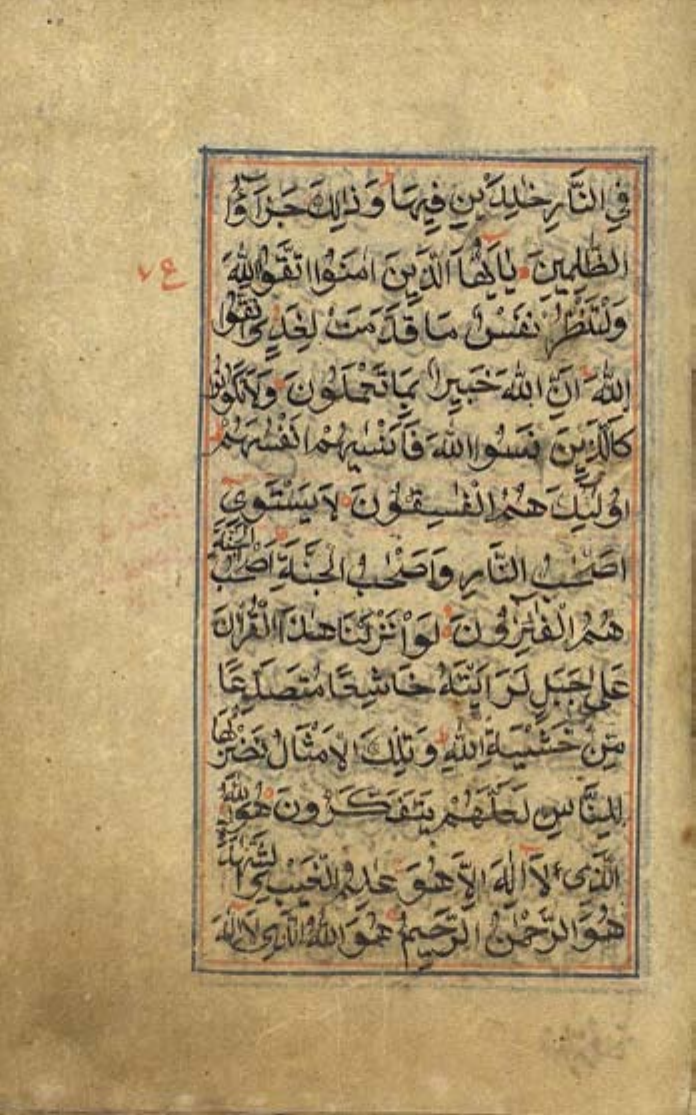 فِي النَّارِ خٰلِدَيْنِ فِيهَا وَذٰلِكَ جَزٰٓؤُا
الظّٰلِمِينَ يٰٓاَيُّهَا الَّذِينَ اٰمَنُوا اتَّقُوا اللّٰهَ
وَلْتَنْظُرْ نَفْسٌ مَا قَدَّمَتْ لِغَدٍ وَاتَّقُوا
اللّٰهَ اِنَّ اللّٰهَ خَبِيرٌ بِمَا تَعْمَلُونَ وَلَا تَكُونُوا
كَالَّذِينَ نَسُوا اللّٰهَ فَاَنْسٰيهُمْ اَنْفُسَهُمْ
اُولٰٓئِكَ هُمُ الْفٰسِقُونَ لَا يَسْتَوِي
اَصْحٰبُ النَّارِ وَاَصْحٰبُ الْجَنَّةِ اَصْحٰبُ الْجَنَّةِ
هُمُ الْفَٓائِزُونَ لَوْ اَنْزَلْنَا هٰذَا الْقُرْاٰنَ
عَلٰى جَبَلٍ لَرَاَيْتَهُ خَاشِعًا مُتَصَدِّعًا
مِنْ خَشْيَةِ اللّٰهِ وَتِلْكَ الْاَمْثَالُ نَضْرِبُهَا
لِلنَّاسِ لَعَلَّهُمْ يَتَفَكَّرُونَ هُوَ اللّٰهُ
الَّذِي لَٓا اِلٰهَ اِلَّا هُوَ عٰلِمُ الْغَيْبِ وَالشَّهَادَةِ
هُوَ الرَّحْمٰنُ الرَّحِيمُ هُوَ اللّٰهُ الَّذِي لَٓا اِلٰهَ